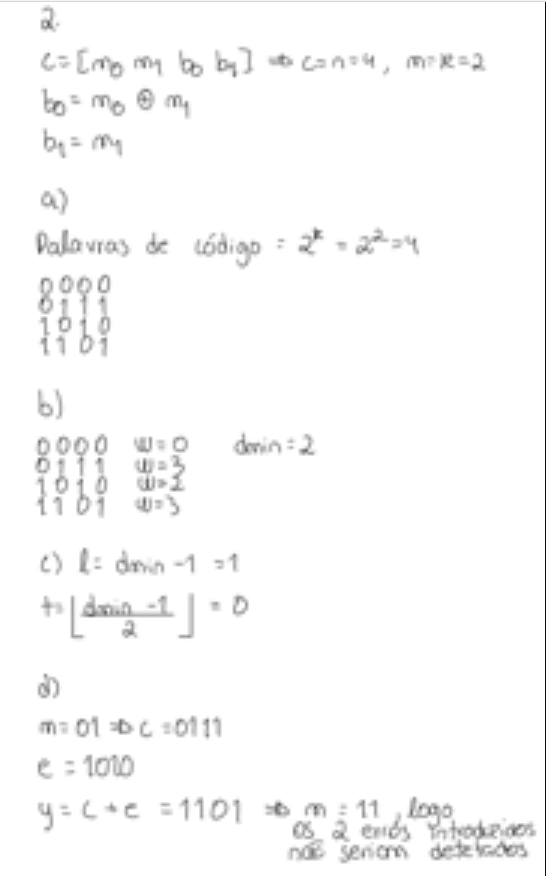 2.
c = [m0 m1 b0 b1] => c=n=4, m=k=2
b0 = m0 ⊕ m1
b1 = m1
a)
Palavras de código = 2^k = 2^2 = 4
0000
0111
1010
1101
b)
0000 w=0 dmin=2
0111 w=3
1010 w=2
1101 w=3
c) l = dmin -1 = 1
t = ⌊(dmin -1)/2⌋ = 0
d)
m=01 => c=0111
e = 1010
y = c + e = 1101 => m = 11, logo
os 2 erros introduzidos
não seriam detetados